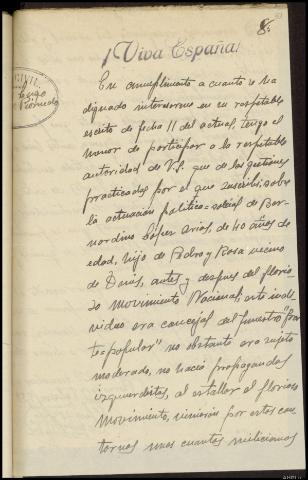 8.
¡Viva España!
CIVIL
En cumplimiento a cuanto se ha
dignado interesarme en su respetable
escrito de fecha 11 del actual, tengo el
honor de participar a la respetable
autoridad de V.S, que de las gestiones
practicadas por el que suscribe, sobre
la actuación politico=social de Ber-
nardino López Arias, de 40 años de
edad, hijo de Pedro y Rosa vecino
de antes y despues del glorio
so movimiento Nacional; este indi-
viduo era concejal del funesto "fren
te=popular" no obstante era sujeto
moderado, no hacia propagandas
izquierdistas, al estallar el glorioso
Movimiento, vinieron por estos con
tornos unos cuantos milicianos